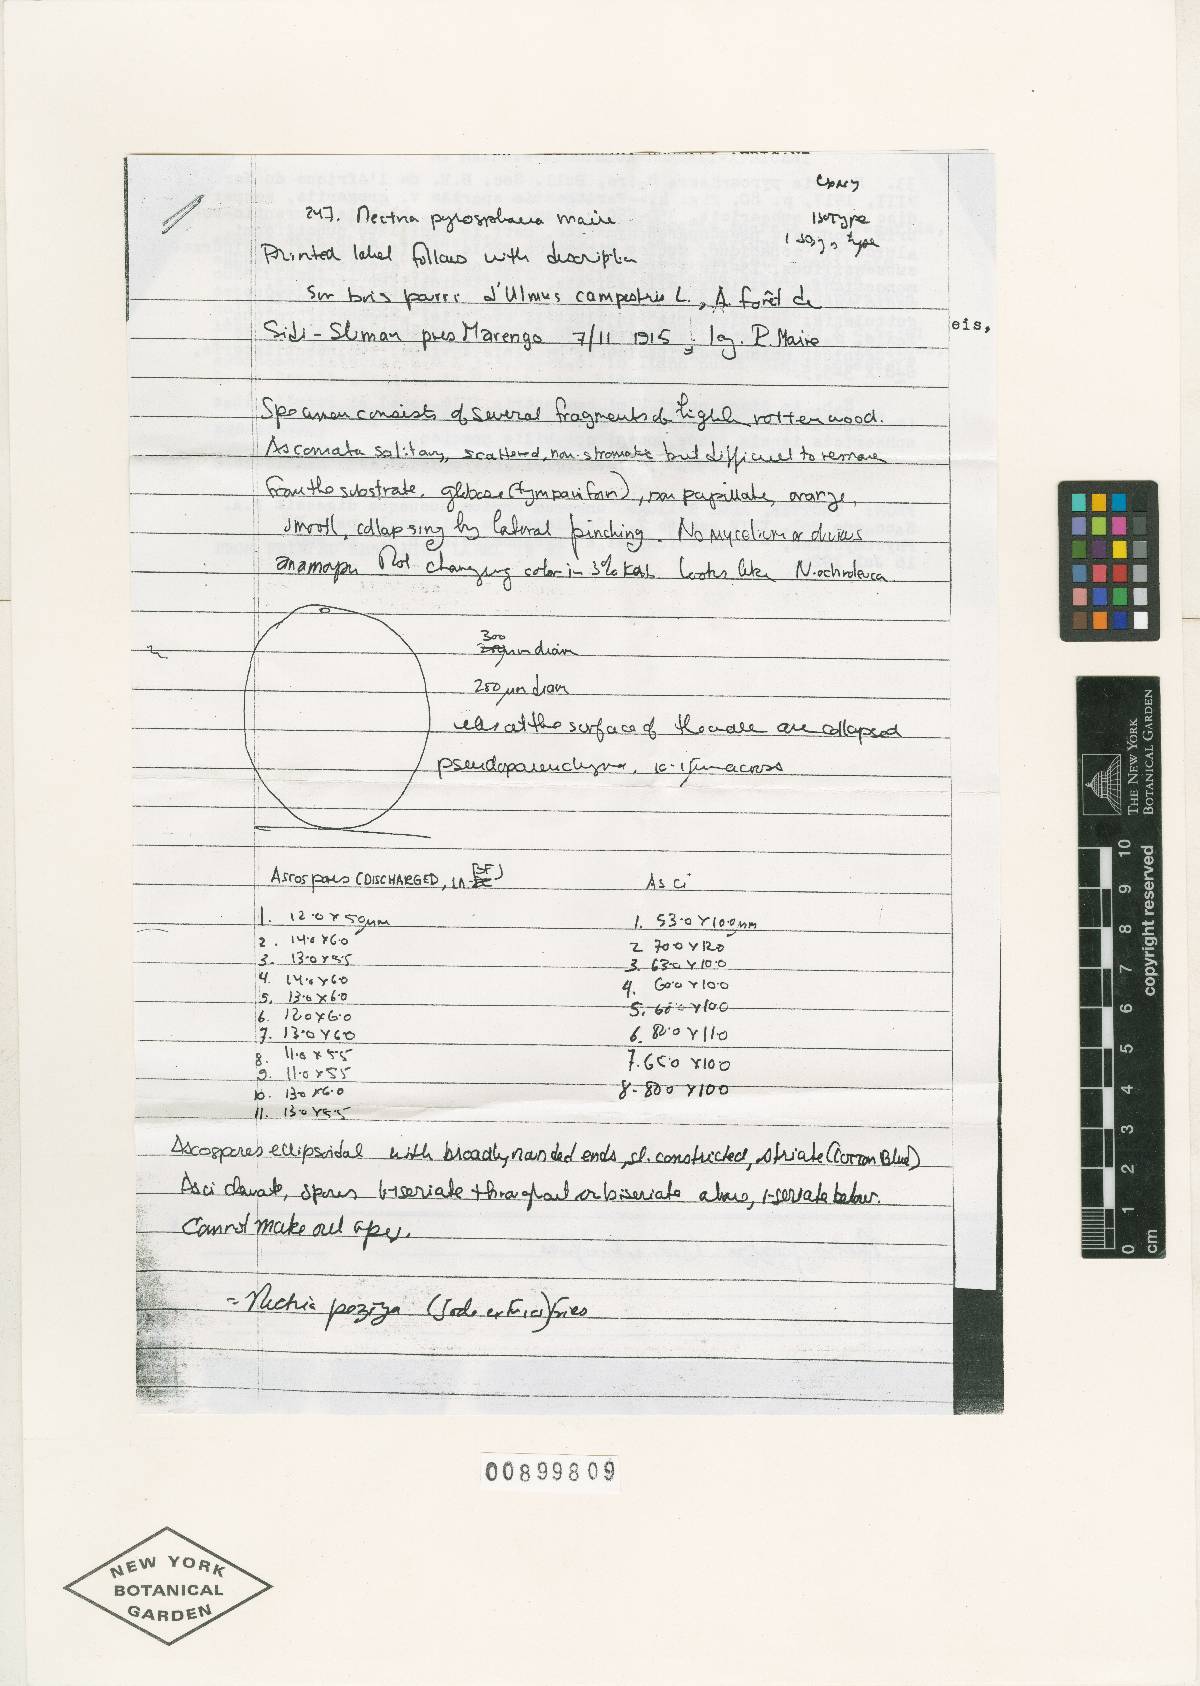 Isotype
247. Nectria pyrosphaera Maire
Isotype
Printed label follows with description
Sur bois pourri d'Ulmus campestris L., A. forêt de
Sidi-Sliman pres Marengo 7/11 1915, leg. R. Maire
eis,
Specimen consists of several fragments of highly rotten wood.
Ascomata solitary, scattered, non-stromatic but difficult to remove
from the substrate, globose (tympaniform), non papillate, orange,
smooth, collapsing by lateral pinching. No mycelium or obvious
anamorph Not changing color in 3% KOH. Looks like N. ochroleuca
300
µm diam
250 µm diam
cells at the surface of the are collapsed
pseudoparenchyma, 10-15µm across
Ascospores (DISCHARGED, LA BF)
Asci
1. 12.0 x 5.0µm
2. 14.0 x 6.0
3. 13.0 x 5.5
4. 14.0 x 6.0
5. 13.0 x 6.0
6. 12.0 x 6.0
7. 13.0 x 6.0
8. 11.0 x 5.5
9. 11.0 x 5.5
10. 13.0 x 6.0
11. 13.0 x 5.5
1. 53.0 x 10.0µm
2. 70.0 x 12.0
3. 63.0 x 10.0
4. 60.0 x 10.0
5. 60.0 x 10.0
6. 82.0 x 11.0
7. 65.0 x 10.0
8. 80.0 x 10.0
Ascospores ellipsoidal with broadly rounded ends, sl. constricted, striate (Cotton Blue)
Asci clavate, spores 1-seriate throughout or biseriate above, 1-seriate below.
Cannot make out apex.
= Nectria peziza (Tode ex Fries) Fries
00899809
NEW YORK
BOTANICAL
GARDEN
THE NEW YORK
BOTANICAL GARDEN
copyright reserved
0 1 2 3 4 5 6 7 8 9 10
cm